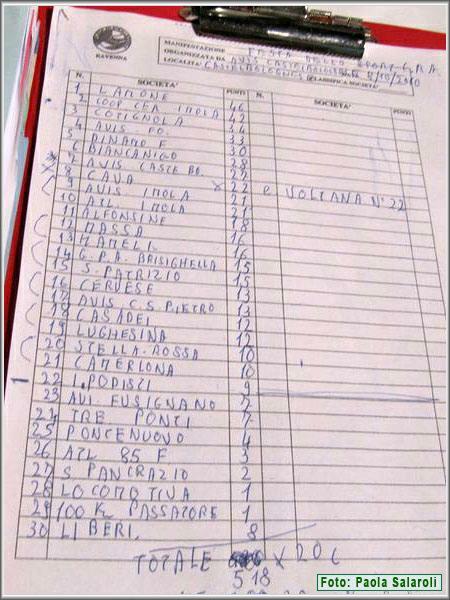 RAVENNA
MANIFESTAZIONE FESTA DELLO SPORT G.R.A.
ORGANIZZATA DA AVIS CASTELBOLOGNESE
LOCALITA' CASTELBOLOGNESE 8/10/2010
CLASSIFICA SOCIETA'
N. SOCIETA' PUNTI N. SOCIETA' PUNTI
1 LAMONE 46
2 COOP CEA IMOLA 42
3 COTIGNOLA 36
4 AVIS FO. 33
5 AVNAMO F 30
6 BIANCANIGO 28
7 AVIS CASTE BO. 22
8 CAVA X 22 e VOLTANA N° 22
9 AVIS IMOLA 21
10 ATL. IMOLA 21
11 ALFONSINE 18
12 MASSA 16
13 MAMELI 16
14 G.P.A. BRISIGHELLA 15
15 S. PATRIZIO 15
16 CERVESE 13
17 AVIS C.S. PIETRO 13
18 CASADEI 12
19 LUGHESINA 12
20 STELLA ROSSA 10
21 CAMERLONA 10
22 I PODISTI 9
23 AVI. FUSIGNANO 7
24 TRE PONTI 7
25 PONTENUOVO 4
26 ATL 85 F 3
27 S PANCRAZIO 2
28 LOCOMOTIVA 1
29 100 K PASSATORE 1
30 LIBERI 8
TOTALE X 20 C
518
Foto: Paola Salaroli